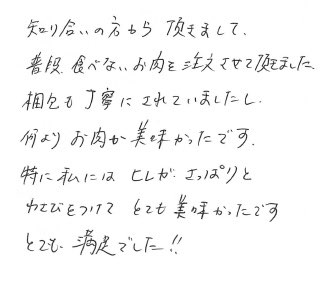 知り合いの方から頂きまして、
普段食べないお肉を注文させて頂きました
梱包も丁寧にされていましたし、
何よりお肉が美味かったです。
特に私にはヒレがさっぱりと
わさびをつけてとても美味かったです
とても満足でした!!